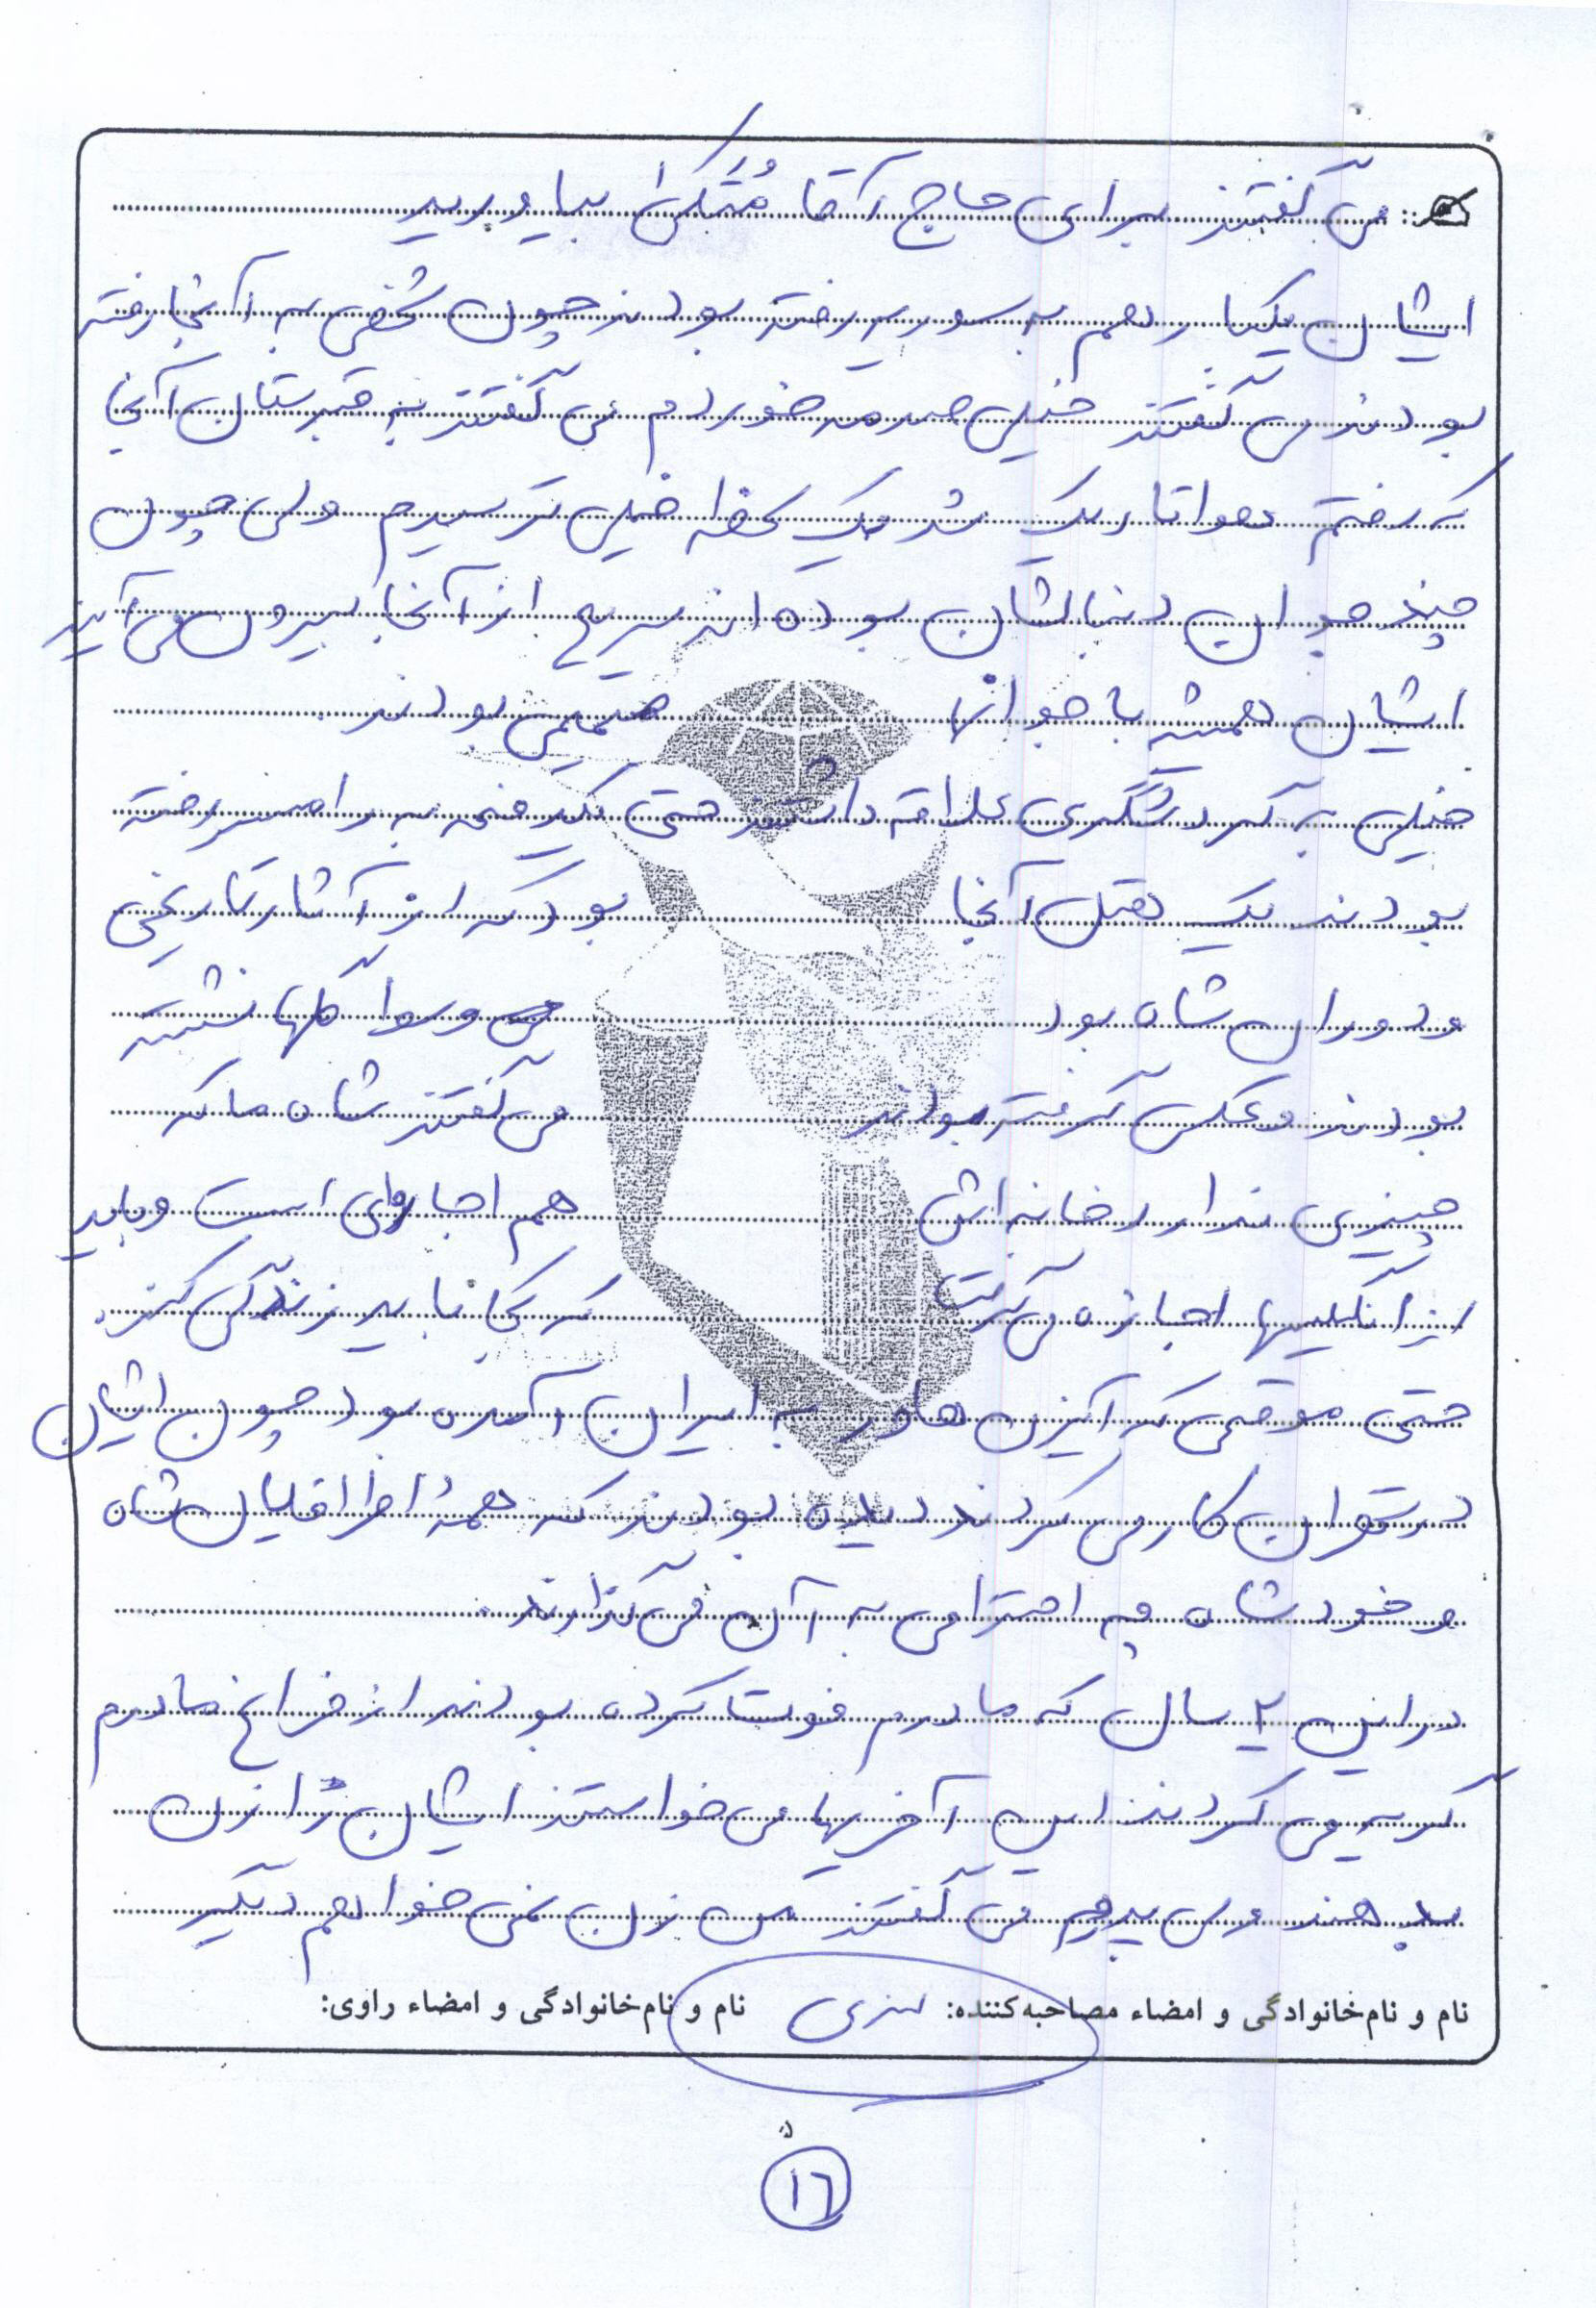 می گفتند برای حاج آقا مُتَکّی بیاورید
ایشان یکبار هم به سوریه رفته بودند چون شخصی به آنجا رفته
بودند می گفتند خیلی صدمه خوردم می گفتند به قبرستان آنجا
که رفتم هوا تاریک شد یک لحظه خیلی ترسیدم ولی چون
چند جوان دنبالشان بوده اند سریع از آنجا بیرون می آیند
ایشان همیشه با جوانها صمیمی بودند
خیلی به گردشگری علاقه داشتند حتی یکدفعه به رامسر رفته
بودند یک هتل آنجا بود که از آثار تاریخی
و دوران شاه بود گلها نشسته
بودند و عکس گرفته بودند می گفتند شاه ما که
چیزی ندارد خانه اش هم اجاره ای است و باید
از انگلیسیها اجازه می گرفت که کجا باید زندگی کند.
حتی موقعی که آیزن هاور به ایران آمده بود چون ایشان
در تهران کار می کردند دیده بودند که همهٔ اطرافیان شاه
و خود شاه چه احترامی به آن می گذارند.
در این ۲ سال که مادرم فوت کرده بودند از فراغ مادرم
گریه می کردند این آخریها می خواستند ایشان را زن
بدهند ولی پدرم می گفتند من زن نمی خواهم دیگر
نام و نام‌خانوادگی و امضاء مصاحبه‌کننده: نام و نام‌خانوادگی و امضاء راوی:
۱٦